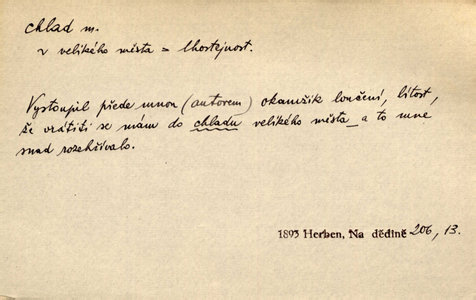 chlad m.
v velikého města = lhostejnost.
Vystoupil přede mnou (autorem) okamžik loučení, lítost,
že vrátiti se mám do chladu velikého města_a to mne
snad rozehřívalo.
1893 Herben, Na dědině 206, 13.